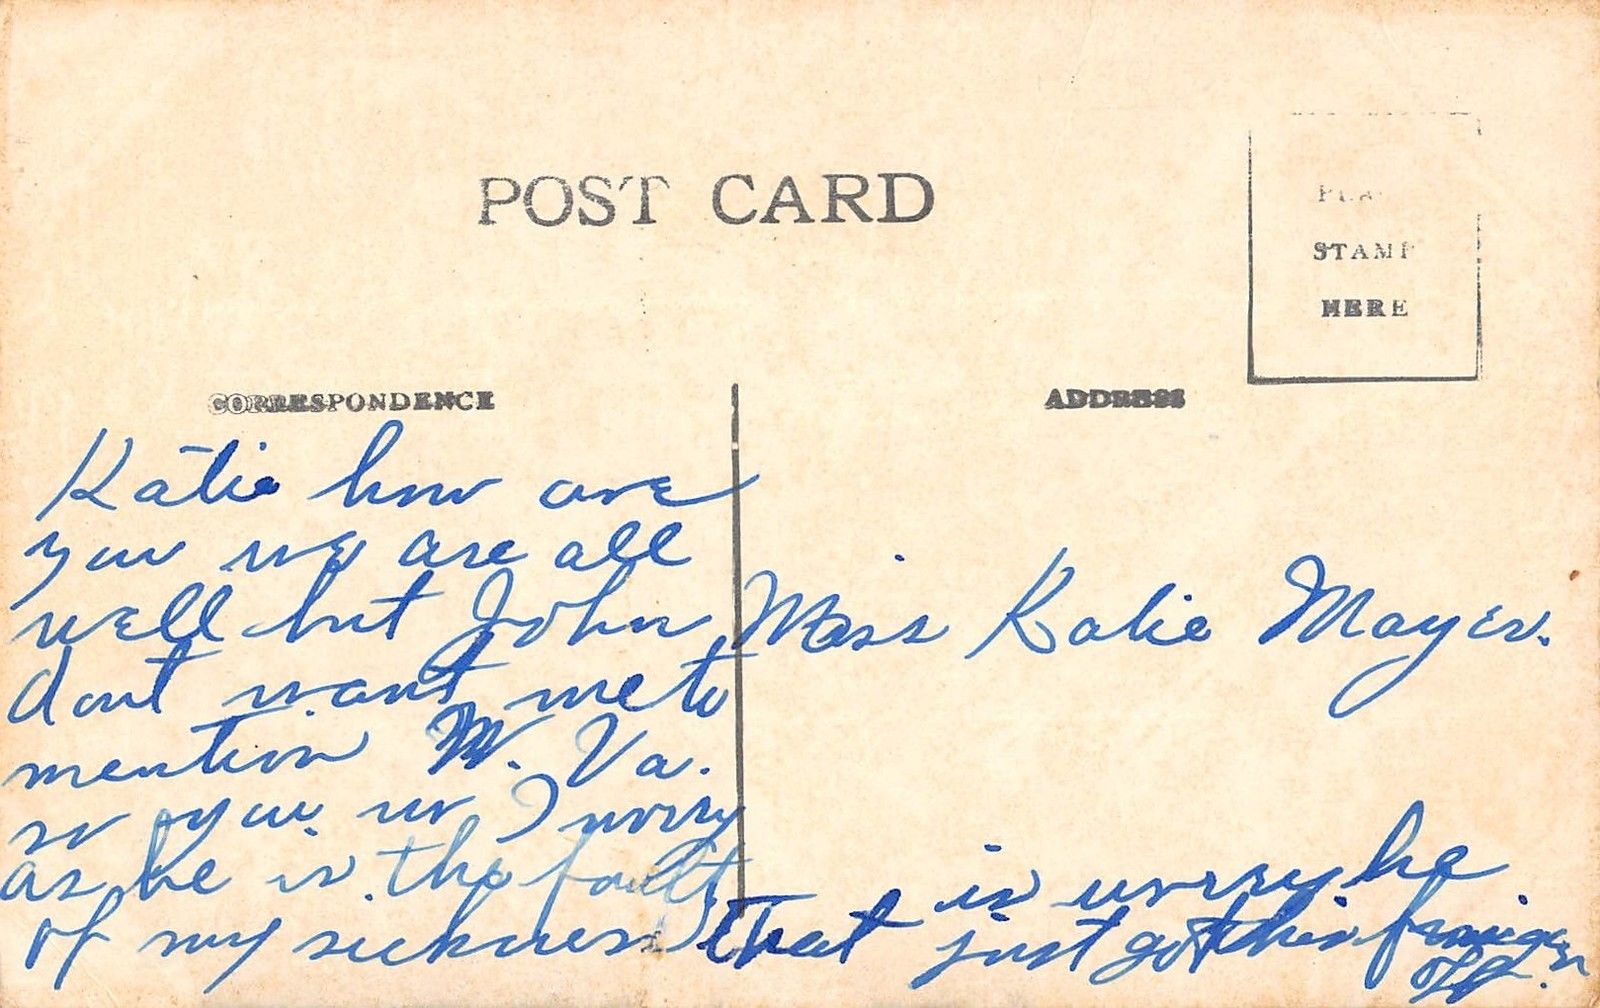 POST CARD
PLA
STAMP
HERE
CORRESPONDENCE
ADDRESS
Katie how are
you we are all
well but John
dont want me to
mention W. Va.
so you I worry
as he is the fault
of my sickness That
is worry he
just got his finger
off.
Miss Katie Mayer.